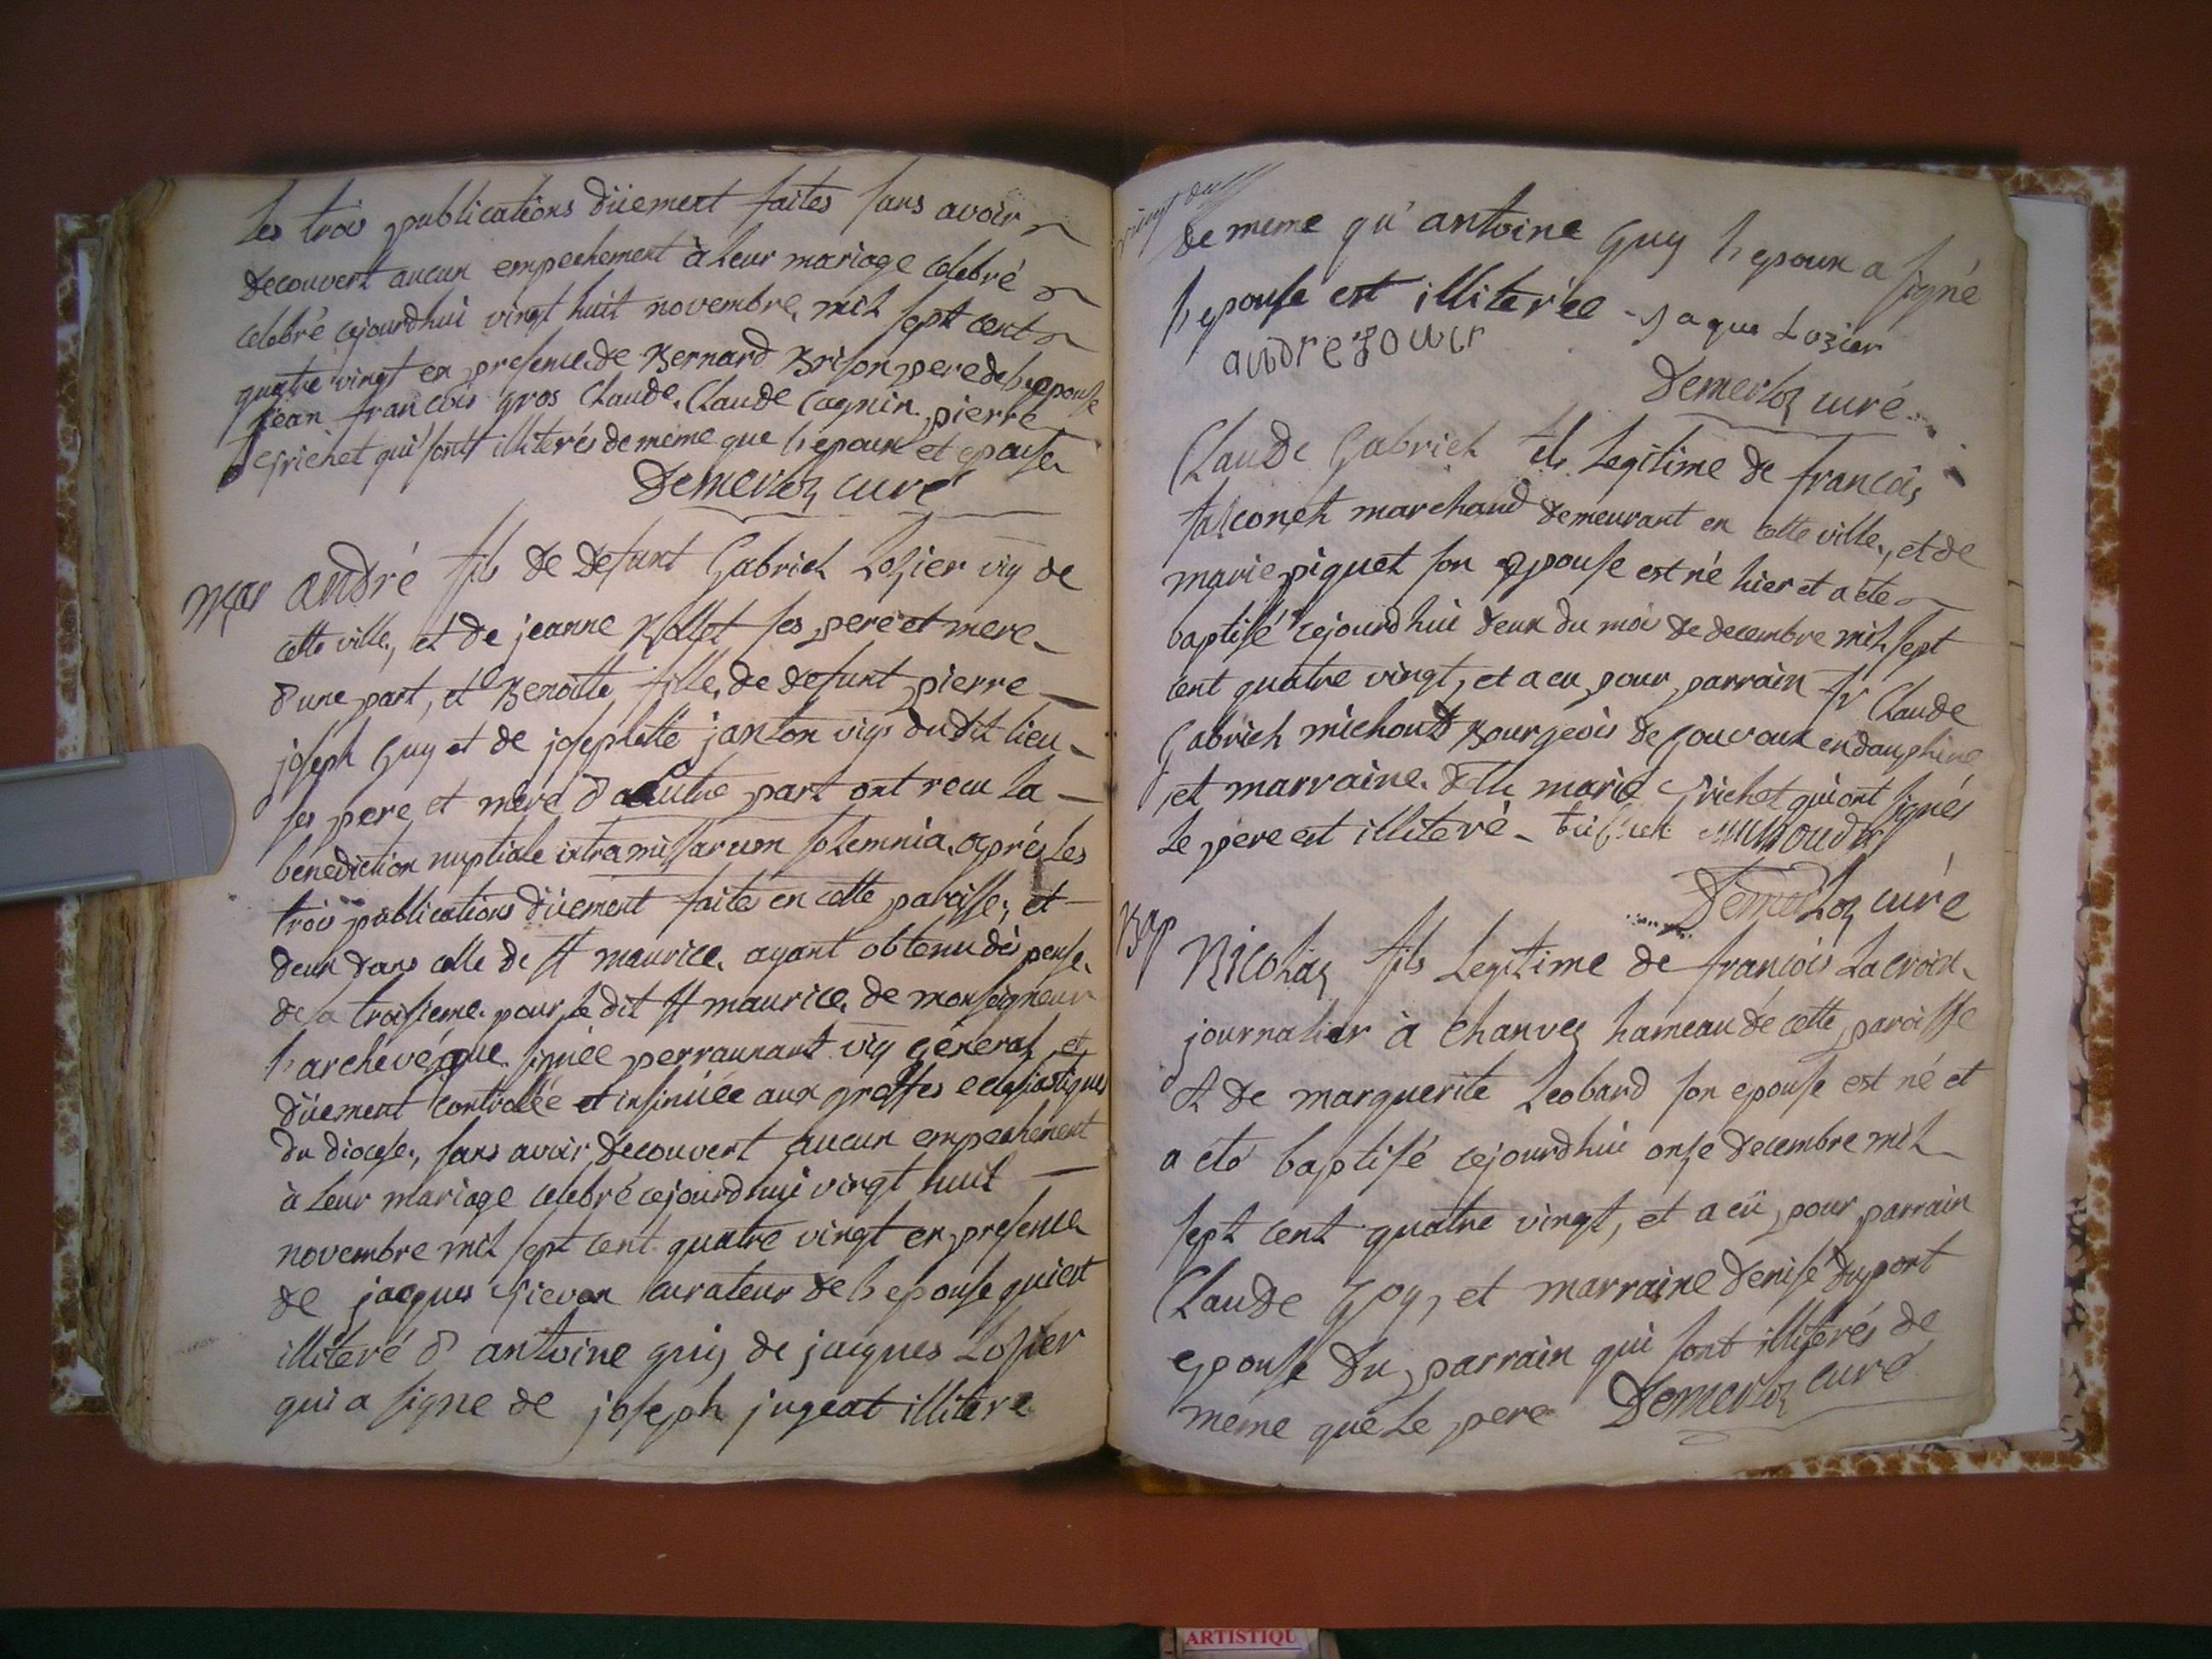 les trois publications düement faites sans avoir
decouvert aucun empechement à leur mariage celebré
celebré cejourdhui vingt huit novembre mil sept cent
quatre vingt en presence de Bernard Brison pere de l'epouse
jean francois gros Claude, Claude Cagnin, pierre
qui sont illiterés de meme que l'epoux et epouse
Demerloz curé
Mar andré fils de defunt Gabriel Lozier vig de
cette ville, et de jeanne Rollet ses pere et mere
d'une part, et Benoitte fille de defunt pierre
joseph Guy et de josephette janton vigs dudit lieu
ses pere et mere d'aultre part ont recu la
benediction nuptiale intra missarum solemnia, après les
trois publications düement faites en cette paroisse, et
deux dans celle de St maurice, ayant obtenu dispense
de la troisieme pour le dit St maurice, de monseigneur
l'archevéque signée vig géneral et
düement controllée et insinuée aux greffes eclesiastiques
du diocese, sans avoir decouvert aucun empechement
à leur mariage celebré cejourdhui vingt huit
novembre mil sept cent quatre vingt en presence
de jacques curateur de l'epouse qui est
illiteré d'antoine guy, de jacques Lozier
qui a signe de joseph jugeat illitere
vingt deux
de meme qu'antoine Guy l'epoux a signé
l'epouse est illiterée jaque Lozier
andre
Demerloz curé
Claude Gabriel fils legitime de francois
falconet marchand demeurant en cette ville, et de
marie piquet son epouse est né hier et a été
baptisé cejourdhui deux du moi de decembre mil sept
cent quatre vingt, et a eu pour parrain Sr Claude
Gabriel michoud Bourgeois de en dauphine
et marraine Dlle marie qui ont signés
le pere est illiteré michoud
Demerloz curé
Bap
Nicolas fils legitime de francois Lacroix
journalier à Chanves hameau de cette paroisse
et de marguerite Leobard son epouse est né et
a été baptisé cejourdhui onse decembre mil
sept cent quatre vingt, et a eü pour parrain
Claude Goy, et marraine denise duport
epouse du parrain qui sont illiterés de
meme que le pere Demerloz curé
ARTISTIQU